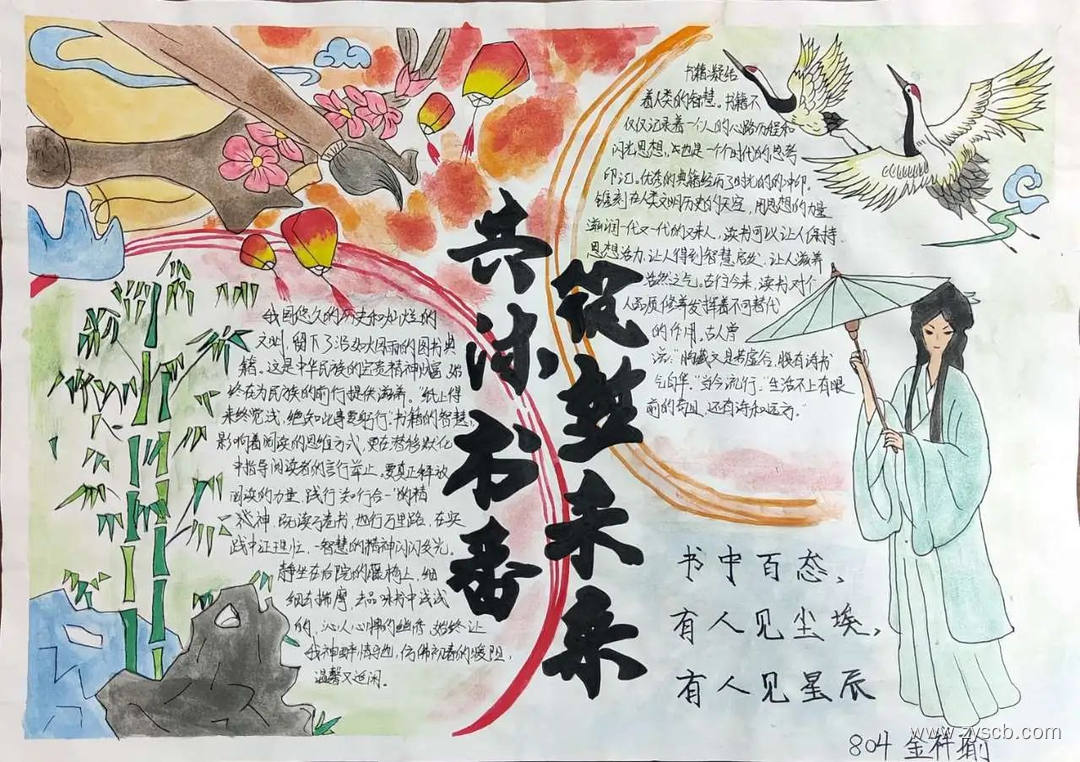 共沐书香
筑梦未来
书籍凝结
着人类的智慧。书籍不
仅仅记录着一个人的心路历程和
闪光思想，也是一个个时代的思考
印记。优秀的典籍经历了时光的冲印，
镌刻在人类文明历史的天空，用思想的力量
滋润一代又一代的来人，读书可以让人保持
思想活力，让人得到智慧启发，让人滋养
浩然之气。古往今来，读书对个
人品质修养发挥着不可替代
的作用。古人曾
说："胸藏文墨若虚谷，腹有诗书
气自华。"当今流行："生活不止有眼
前的苟且，还有诗和远方。"
我国悠久的历史和灿烂的
文明，留下了浩如烟海的图书典
籍。这是中华民族的宝贵精神财富，始
终在为民族的前行提供滋养。"纸上得
来终觉浅，绝知此事要躬行"书籍的智慧，
影响着阅读的思维方式，更在潜移默化
中指导阅读者的言行举止。要真正释放
阅读的力量，践行"知行合一"的精
神，既读万卷书，也行万里路，在实
践中让理性、智慧的精神闪闪发光。
静坐在后院的藤椅上，细
细去揣摩，去品味书中浅浅
的、沁人心脾的幽香，始终让
我神醉情驰，仿佛初春的暖阳，
温馨又悠闲。
书中百态，
有人见尘埃，
有人见星辰
www.zyscb.com
804 金梓瑜